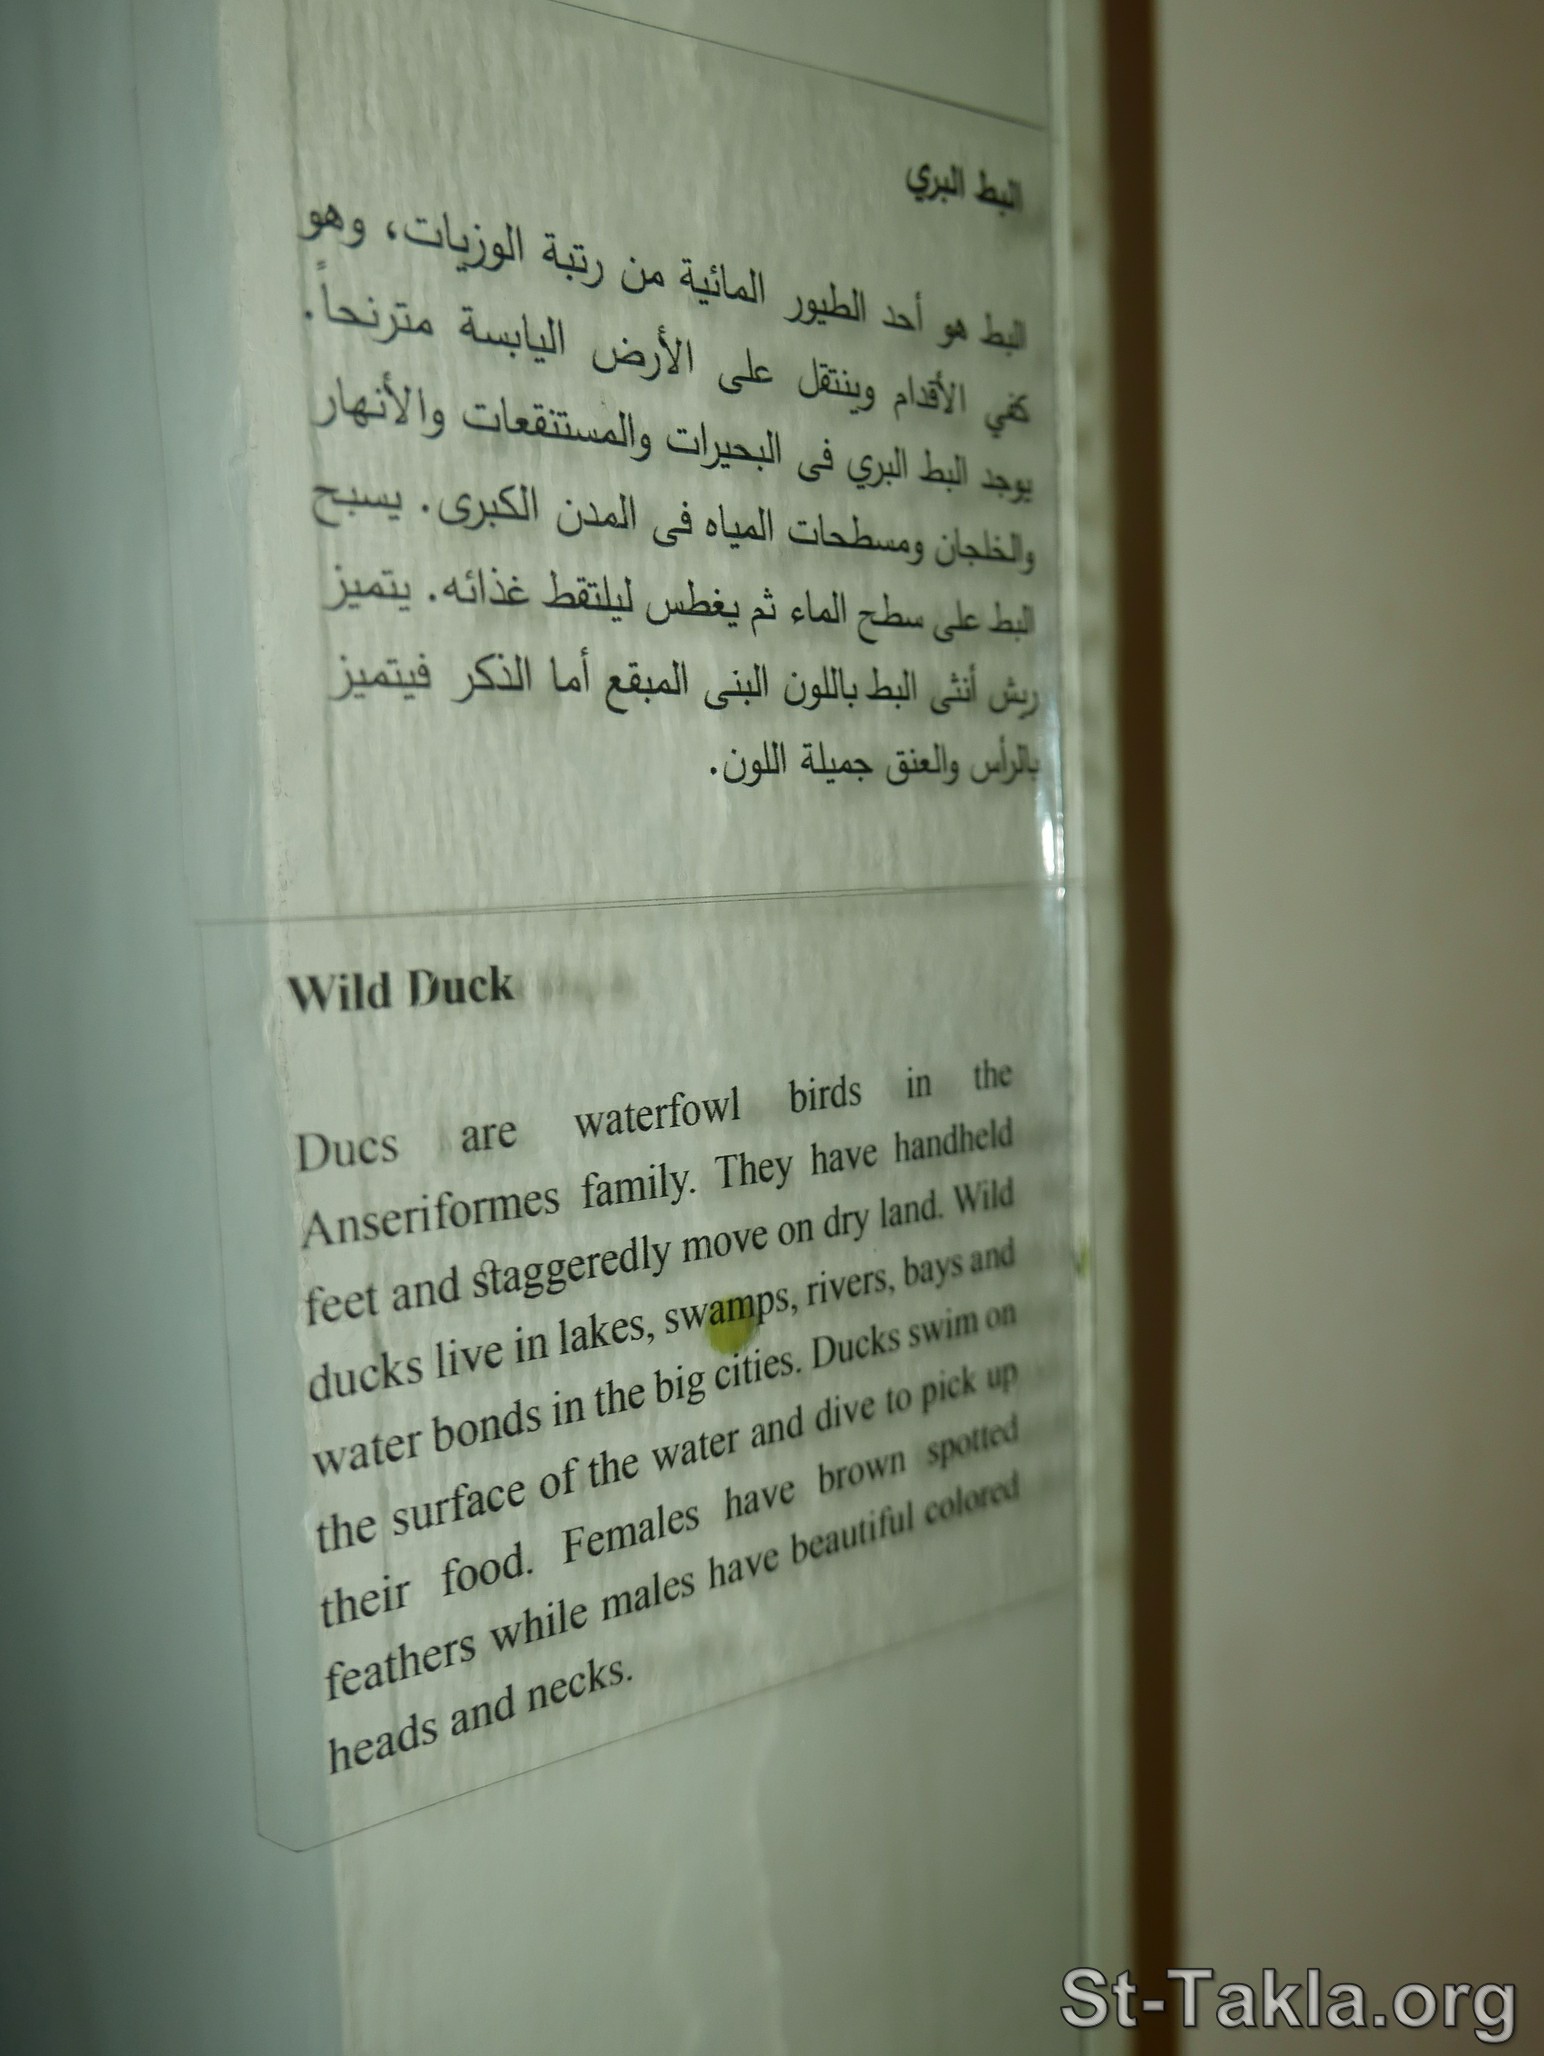 البط البري
البط هو أحد الطيور المائية من رتبة الوزيات، وهو
كفي الأقدام وينتقل على الأرض اليابسة مترنحاً.
يوجد البط البري فى البحيرات والمستنقعات والأنهار
والخلجان ومسطحات المياه فى المدن الكبرى. يسبح
البط على سطح الماء ثم يغطس ليلتقط غذائه. يتميز
ريش أنثى البط باللون البنى المبقع أما الذكر فيتميز
بالرأس والعنق جميلة اللون.
Wild Duck
Ducs are waterfowl birds in the
Anseriformes family. They have handheld
feet and staggeredly move on dry land. Wild
ducks live in lakes, swamps, rivers, bays and
water bonds in the big cities. Ducks swim on
the surface of the water and dive to pick up
their food. Females have brown spotted
feathers while males have beautiful colored
heads and necks.
St-Takla.org